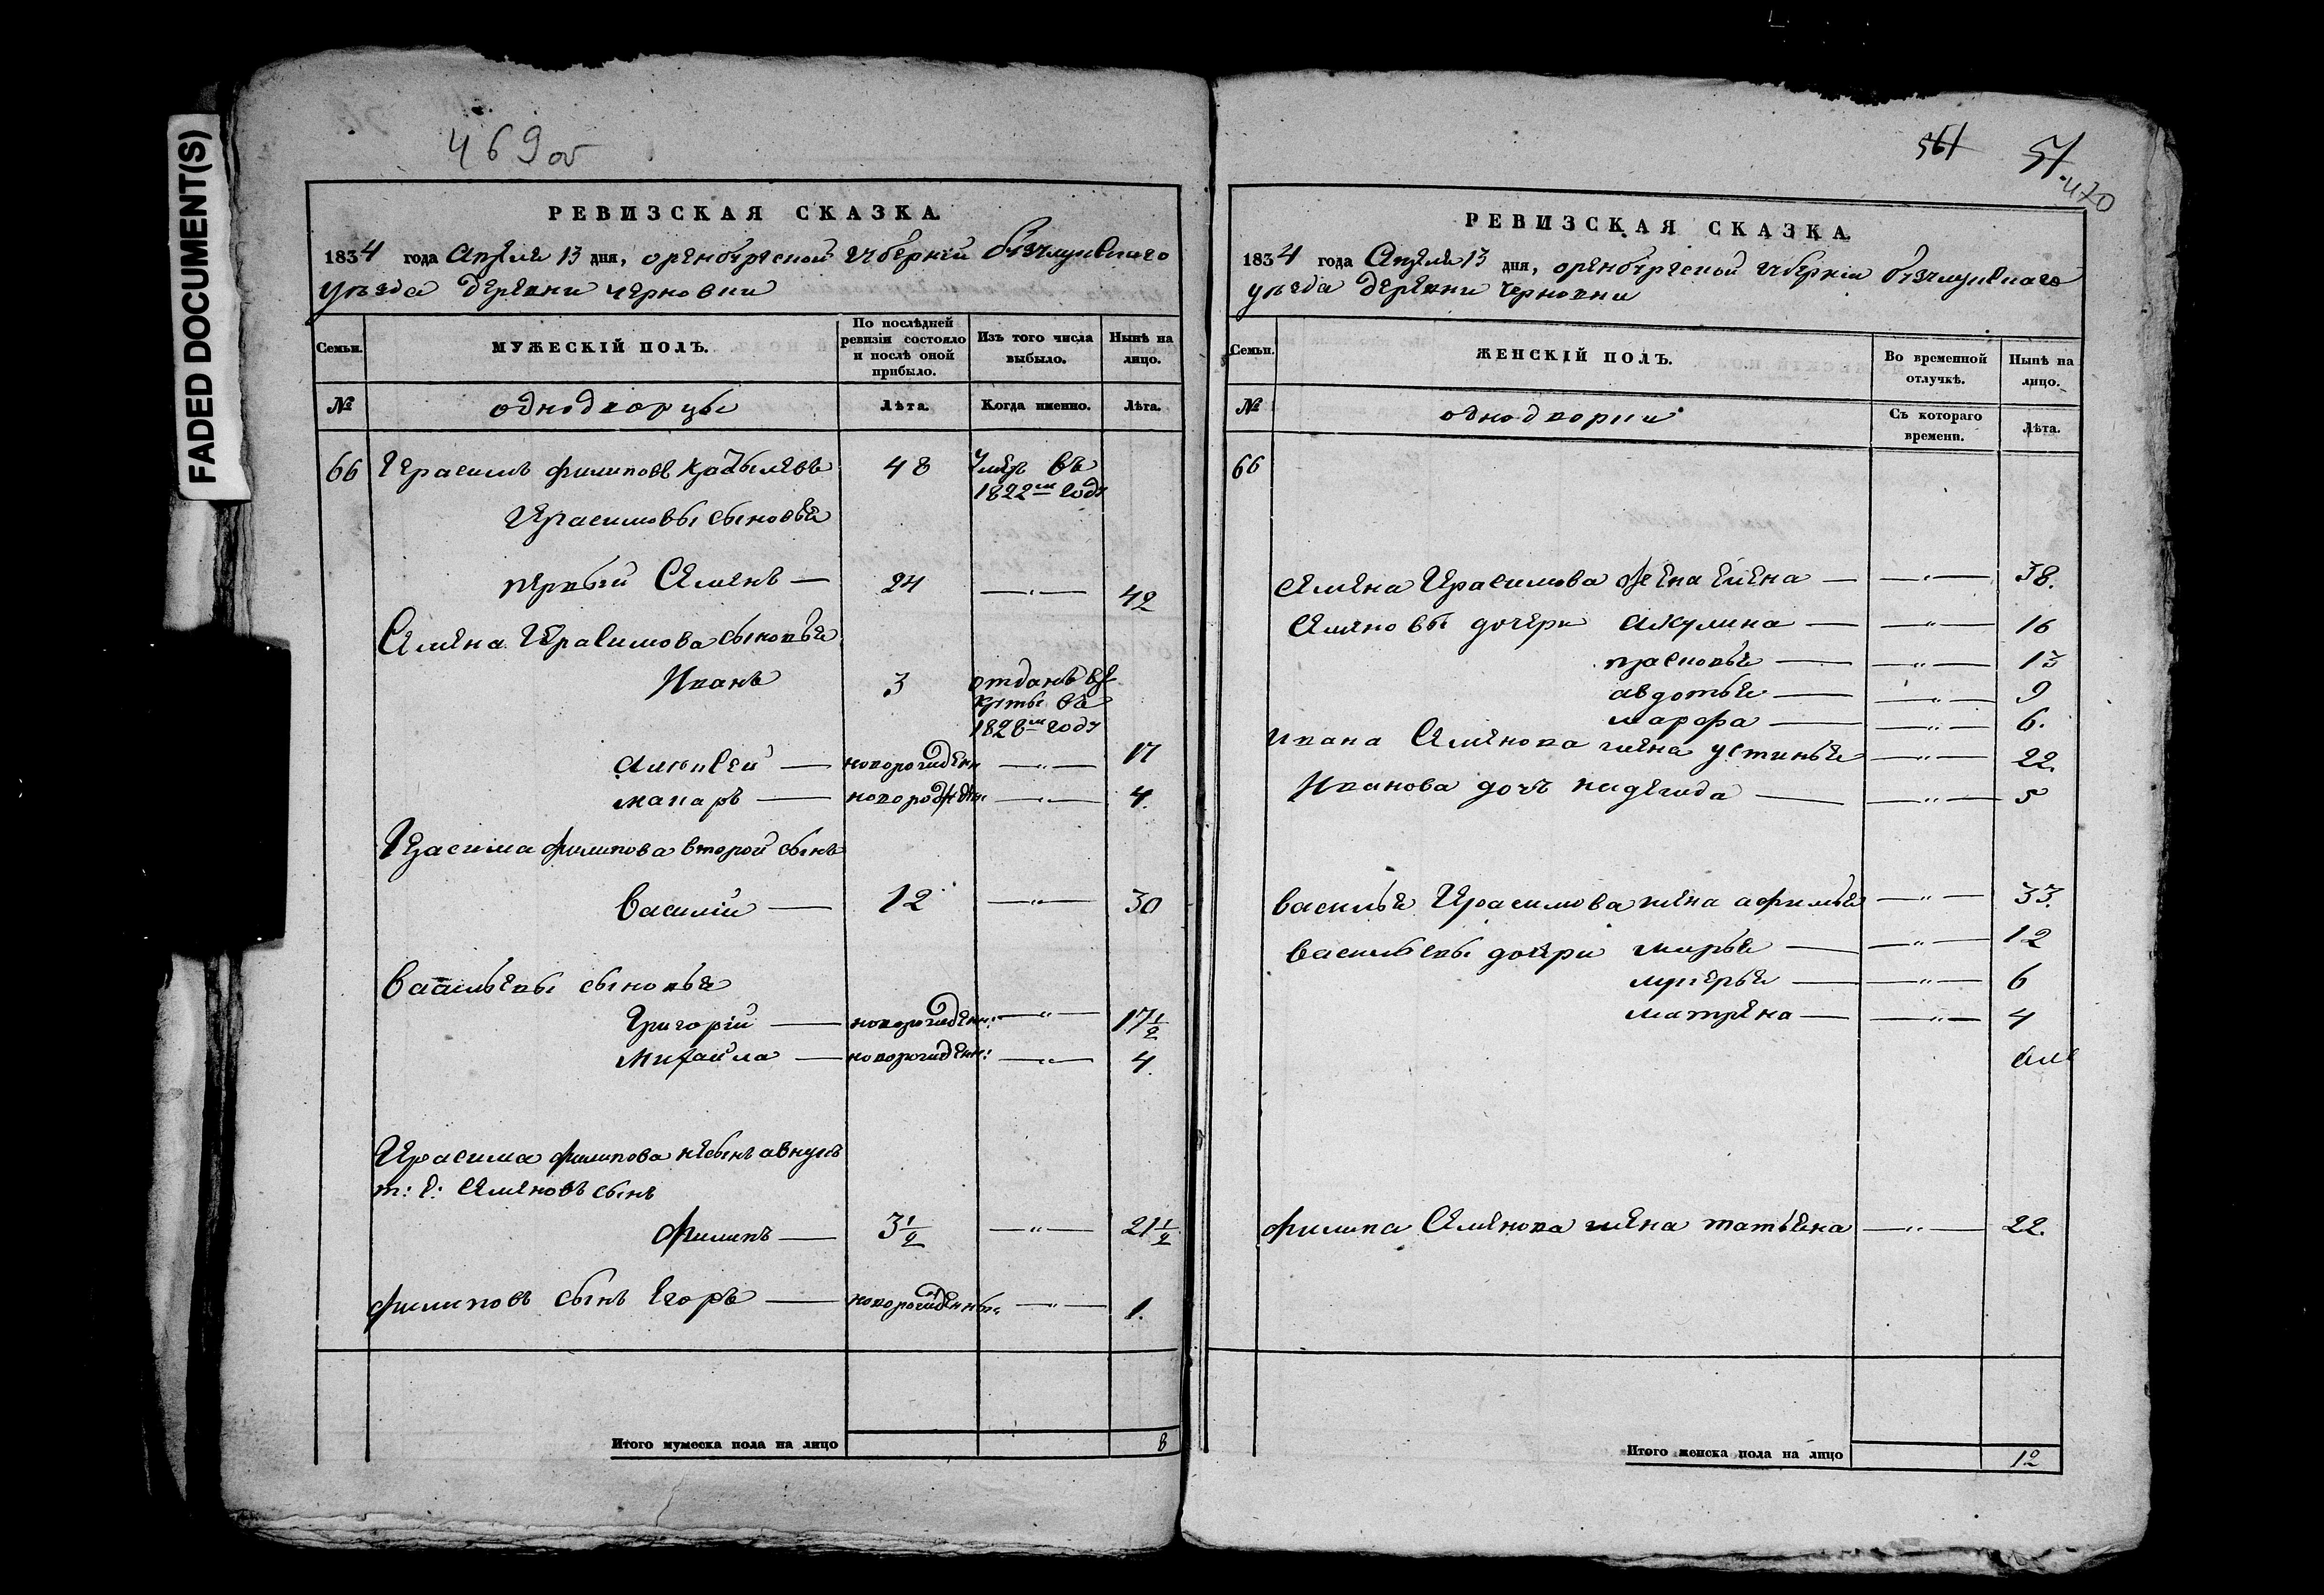 FADED DOCUMENT(S)
469об
РЕВИЗСКАЯ СКАЗКА.
1834 года Апреля 13 дня, оренбургской губернии бузулуцкаго
уезда деревни черновки
Семьи. МУЖЕСКІЙ ПОЛЪ. По послѣдней ревизіи состояло и послѣ оной прибыло. Изъ того числа выбыло. Нынѣ на лицо.
№ однодворцы Лѣта. Когда именно. Лѣта.
66 Герасимъ филиповъ 48 Умеръ въ
1822м году
Герасимовы сыновья
первый Семенъ — 24 —„— 42
Семена Герасимова сыновья
Иванъ 3 отданъ въ ре
круты въ
1828м году
Алексей — новорожден —„— 17
макаръ — новорожден: —„— 4.
Герасима филипова второй сынъ
Василій — 12 —„— 30
Васильевы сыновья
Григорій — новорожден: —„— 17½
михайла — новорожден: —„— 4.
Герасима филипова несынъ авнукъ
т: е: Семеновъ сынъ
Филипъ — 3½ —„— 21½
филиповъ сынъ Егоръ — новорожденны: —„— 1.
Итого мужеска пола на лицо 8
561 51 470
РЕВИЗСКАЯ СКАЗКА.
1834 года Апреля 13 дня, оренбургской губерніи бузулуцкаго
уезда деревни черновки
Семьи. ЖЕНСКІЙ ПОЛЪ. Во временной отлучкѣ. Нынѣ на лицо.
№ однодворки Съ котораго времени. Лѣта.
66
Семена Герасимова жена елена — —„— 38.
Семеновы дочери акулина — —„— 16
прасковья — —„— 13
авдотья — —„— 9
марфа — —„— 6.
ивана Семенова жена устинья —„— 22.
Иванова дочь надежда — —„— 5
василья Герасимова жена афимья —„— 33.
васильевы дочери марья — —„— 12
лукерья — —„— 6
матрена — —„— 4
филипа Семенова жена татьяна —„— 22.
Итого женска пола на лицо 12